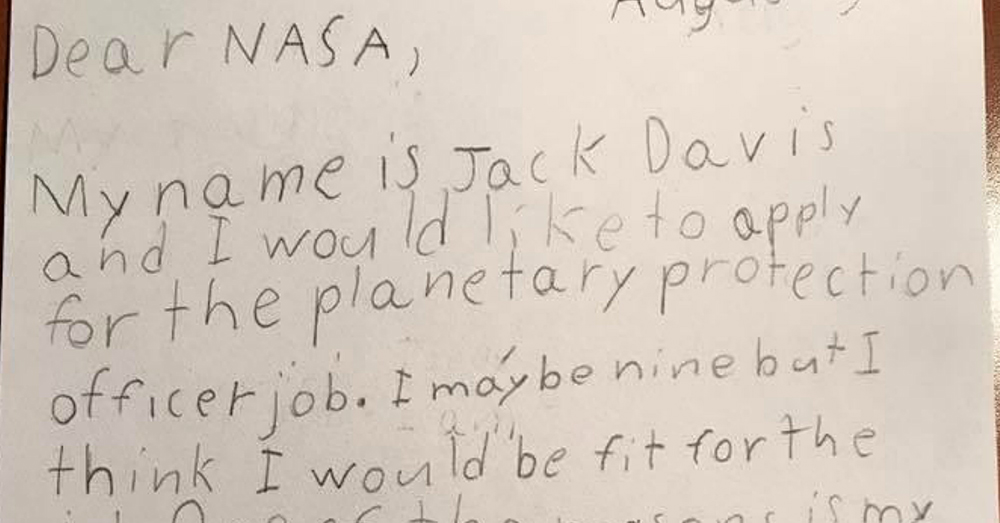 Augus
Dear NASA,
My name is Jack Davis
and I would like to apply
for the planetary protection
officer job. I may be nine but I
think I would be fit for the
is my